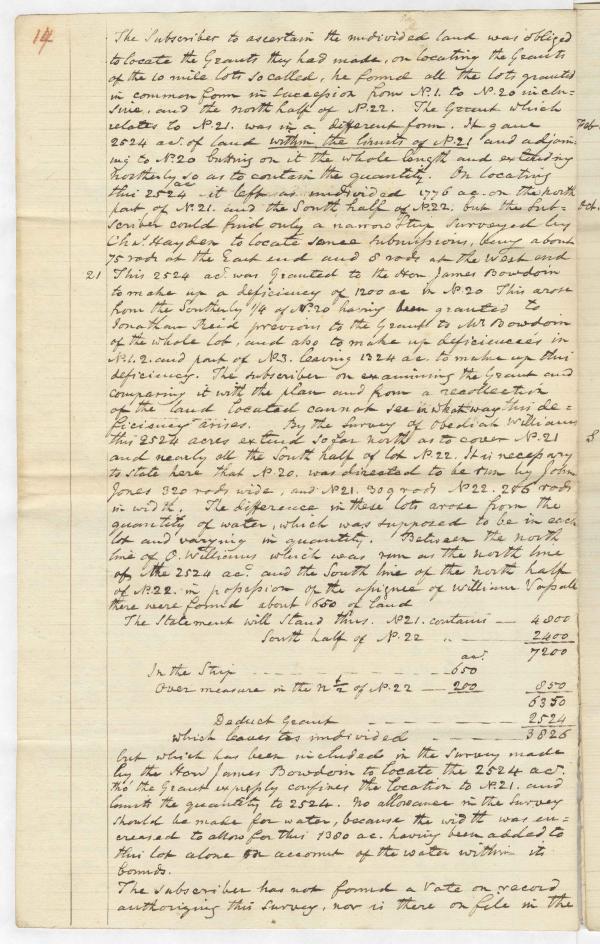 14
The Subscriber to ascertain the undivided land was obliged
to locate the Grants they had made, on locating the Grants
of the 10 mile lots so called, he found all the lots granted
in common form in succession from No. 1. to No. 20 inclu=
sive, and the north half of No. 22. The Grant which
relates to No. 21. was in a different form. It gave
2524 acs. of land within the limits of No. 21 and adjoin=
ing to No. 20 butting on it the whole length and extending
Northerly so as to contain the quantity. On locating
this 2524 ac it left as undivided 1776 ac. on the north
part of No. 21. and the South half of No. 22. but the Sub=
scriber could find only a narrow Strip Surveyed by
Chas. Hayden to locate sence submissions, being about
75 rods at the East end and 8 rods at the West end
21 This 2524 acs. was Granted to the Hon James Bowdoin
to make up a deficiency of 1200 ac in No. 20 This arose
from the Southerly 1/4 of No. 20 having been granted to
Jonathan Reid previous to the Grant to Mr. Bowdoin
of the whole lot, and also to make up deficiencees in
No. 1. 2. and part of No. 3. leaving 1324 ac. to make up this
deficiency. The subscriber on examining the Grant and
comparing it with the plan and from a recollection
of the land located cannot see in what way this de=
ficiency arises. By the Survey of Obediah Williams
this 2524 acres extend so far north as to cover No. 21
and nearly all the South half of lot No. 22. It is necessary
to state here that No. 20. was directed to be run by John
Jones 320 rods wide, and No. 21. 309 rods No. 22. 286 rods
in width. The difference in these lots arose from the
quantity of water, which was supposed to be in each
lot and varying in quantity. Between the north
line of O. Williams which was run as the north line
of the 2524 ac. and the South line of the north half
of No. 22. in possession of the assignee of William Vassall
there were found about 650 of land
The Statement will Stand thus. No 21. contains — 4800
South half of No. 22 " — 2400
7200
acs.
In the Strip — 650
Over measure in the n ½ of No. 22 — 200 850
6350
Deduct Grant — 2524
which leaves as undivided — 3826
but which has been included in the Survey made
by the Hon James Bowdoin to locate the 2524 acs.
tho the Grant expressly confines the location to No. 21. and
limits the quantity to 2524. No allowance in the Survey
should be made for water, because the width was en=
creased to allow for this 1380 ac. having been added to
this lot alone on account of the water within its
bounds.
The subscriber has not found a Vote on record
authorizing this Survey, nor is there on file in the
Feb.
Oct.